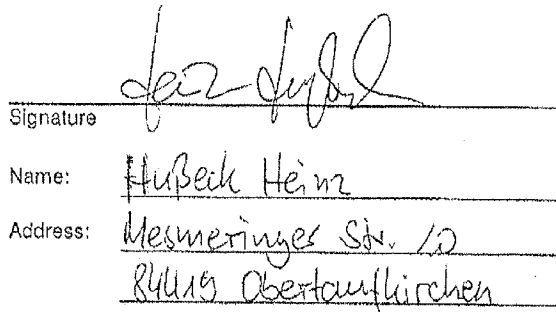 Signature
Name: Hußeck Heinz
Address: Mesmeringer Str. 10
84419 Obertaufkirchen